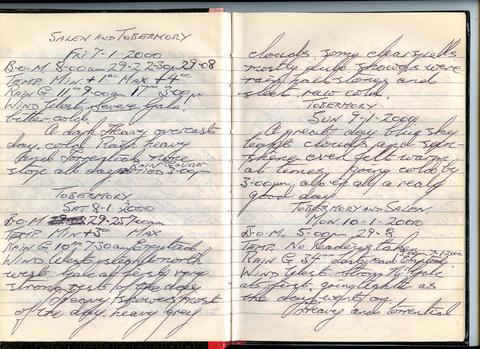 SALEN AND TOBERMORY
FRI 7-1-2000
B-O-M 8-00am 29-2 2-30pm 29-08
TEMP. MIN. +1° MAX +4°
RAIN G 11 9-00am 17 3-00pm
WIND West. Severe Gale.
bitter cold.
A dark heavy overcast
day. cold Rain heavy
and torrential non
stop all day RAIN GAUGE
3-00pm
TOBERMORY
SAT 8-1-2000
B-O-M 29-25 7-00am
TEMP. MIN +3° MAX
RAIN G 10 7-30am Emptied
WIND West, slightly north
west Gale at first very
strong rest of the day
Dreary showers most
of the day. heavy grey
clouds some clear spells
mostly dull showers were
rain hail stones and
sleet raw cold.
TOBERMORY
SUN 9-1-2000
A great day blue sky
clouds and sun-
shine even felt warm
at times. going cold by
3-00pm, all a really
good day.
TOBERMORY AND SALEN.
MON. 10-1-2000
B-O-M. 5-00pm 29-8
TEMP. No Readings taken
RAIN G 34
WIND West. Strong to Gale
at first. going lighter as
the day went on
Dreary and torrential